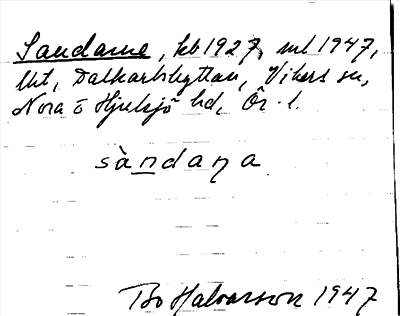 Sandarne, kb 1927, ml 1947,
Dalkarlshyttan, Vikers sn,
Nora o Hjulsjö hd, Ör. l.
sàndaṇa
Bo Halvarson 1947